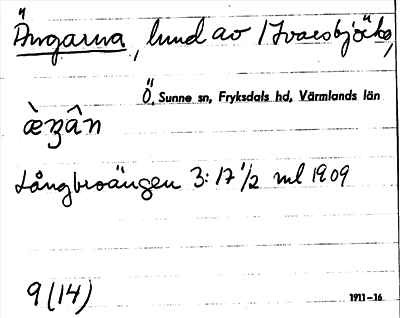 Ängarna, lund av Ivarsbjörke,
Ö. Sunne sn, Fryksdals hd, Värmlands län
æ̀ʒân
Långbroängen 3:17 1/2 ml 1909
9(14)
1911–16